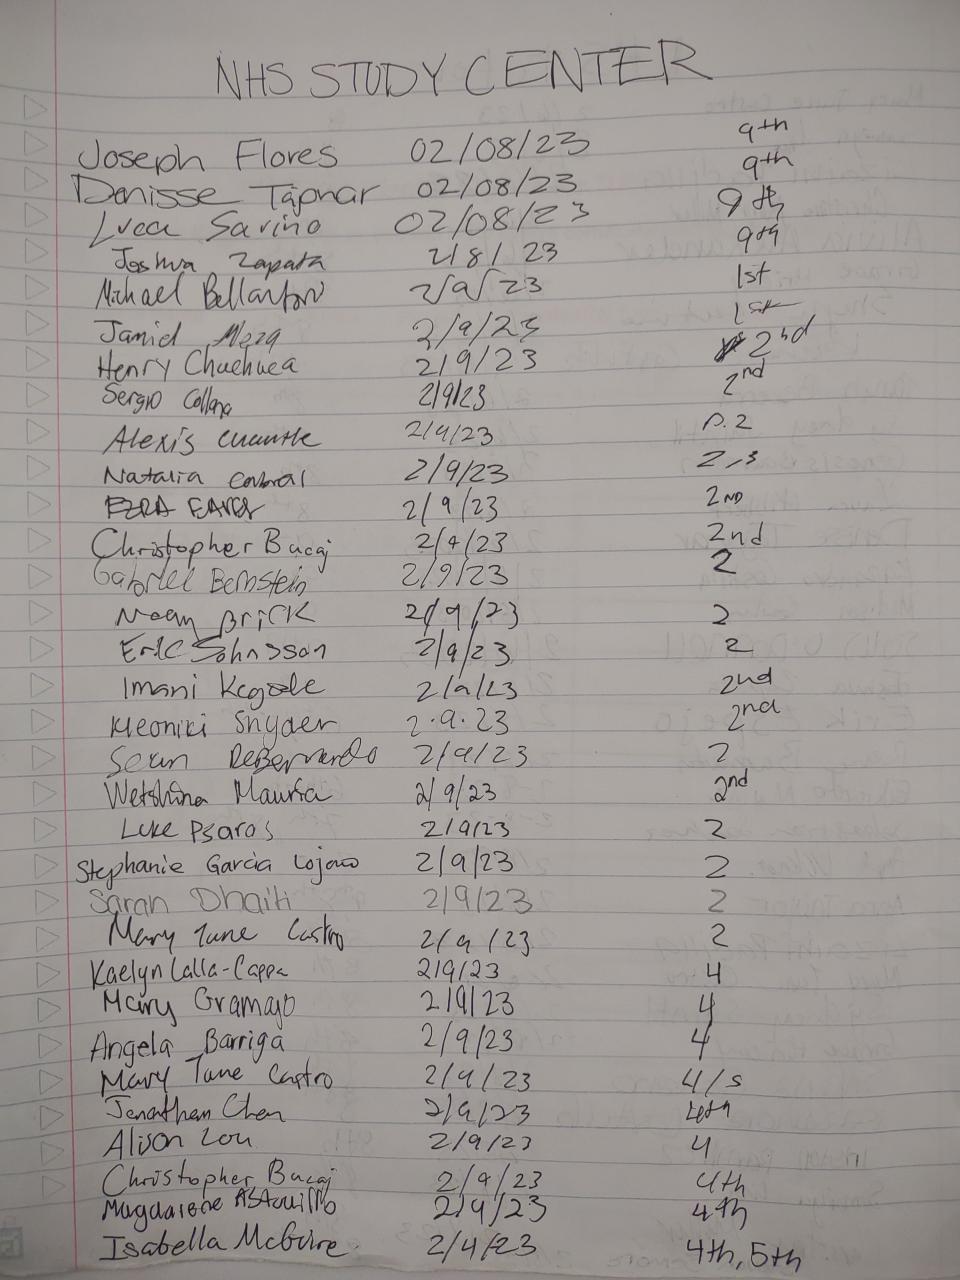 NHS STUDY CENTER
Joseph Flores 02/08/23 9th
Denisse Tajonar 02/08/23 9th
Luca Savino 02/08/23 9th
Joshua Zapata 2/8/23 9th
Michael 2/9/23 1st
Jamid Meza 2/9/23 1st
Henry Chuchuca 2/9/23 2nd
Sergio Collana 2/9/23 2nd
Alexis 2/9/23 p.2
Natalia Cabral 2/9/23 2,3
EZRA 2/9/23 2ND
Christopher Bucaj 2/9/23 2nd
Gabriel Bernstein 2/9/23 2
Noam Brick 2/9/23 2
Eric Johnsson 2/9/23 2
Imani 2/9/23 2nd
Kleoniki Snyder 2.9.23 2nd
Sean DeBernardo 2/9/23 2
Maurisa 2/9/23 2nd
Luke Psaros 2/9/23 2
Stephanie Garcia Lojano 2/9/23 2
Sarah Dhaiti 2/9/23 2
Mary Jane Castro 2/9/23 2
Kaelyn Lalla-Cappa 2/9/23 4
Mary Gramajo 2/9/23 4
Angela Barriga 2/9/23 4
Mary Jane Castro 2/9/23 4/5
Jonathan Chen 2/9/23 4th
Alison Zou 2/9/23 4
Christopher Bucaj 2/9/23 4th
Magdalene Astquillo 2/9/23 4th
Isabella McGuire 2/4/23 4th, 5th